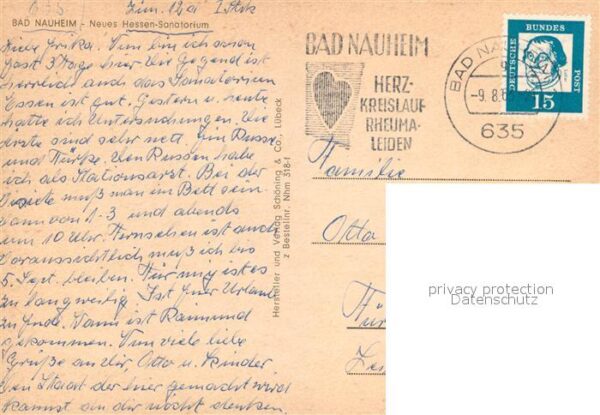 635 Zim. 12a I. Stck
BAD NAUHEIM - Neues Hessen-Sanatorium
Liebe Erika. Nun bin ich schon
fast 3 Tage hier. Die Gegend ist
herrlich und das Sanatorium
Essen ist gut. Gestern u. heute
hatte ich Untersuchungen. Die
Ärzte sind sehr nett. Ein Russe
und Türke. Den Russen habe
ich als Stationsarzt. Bei der
muß man im Bett sein
dann von 1-3 und abends
um 10 Uhr. Fernsehen ist auch
Voraussichtlich muß ich bis
5. Sept. bleiben. Für my ist es
zu langweilig. Ist Euer Urlaub
zu Ende. Dann ist Raimund
gekommen. Nun viele liebe
Grüße an Dir, Otto u. Kinder
Den Staat der hier gemacht wird
kannst an dir nicht denken.
Hersteller und Verlag Schöning & Co., Lübeck
z Bestellnr. Nhm 318-f
BAD NAUHEIM
HERZ-
KREISLAUF
RHEUMA-
LEIDEN
BAD NAUHEIM
-9. 8. 6
635
DEUTSCHE
BUNDES
POST
15
Familie
Otto
privacy protection
Datenschutz